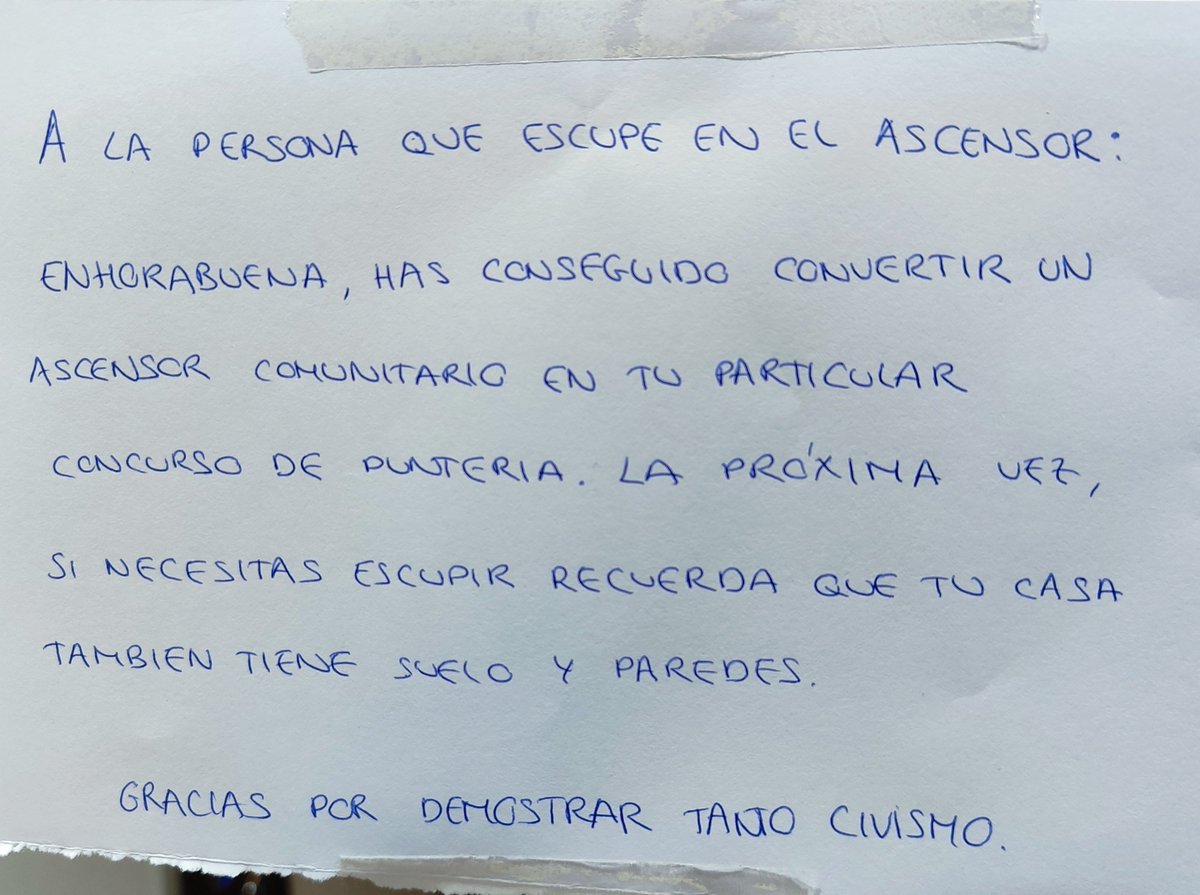 A LA PERSONA QUE ESCUPE EN EL ASCENSOR:
ENHORABUENA, HAS CONSEGUIDO CONVERTIR UN
ASCENSOR COMUNITARIO EN TU PARTICULAR
CONCURSO DE PUNTERIA. LA PRÓXIMA VEZ,
SI NECESITAS ESCUPIR RECUERDA QUE TU CASA
TAMBIEN TIENE SUELO Y PAREDES.
GRACIAS POR DEMOSTRAR TANTO CIVISMO.